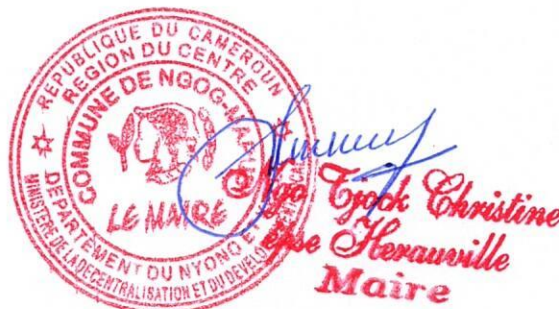 REPUBLIQUE DU CAMEROUN
REGION DU CENTRE
COMMUNE DE NGOG-
LE MAIRE
DEPARTEMENT DU NYONG E
MINISTERE DE LA DECENTRALISATION ET DU DEVELO
Tjock Christine
épse Herauville
Maire